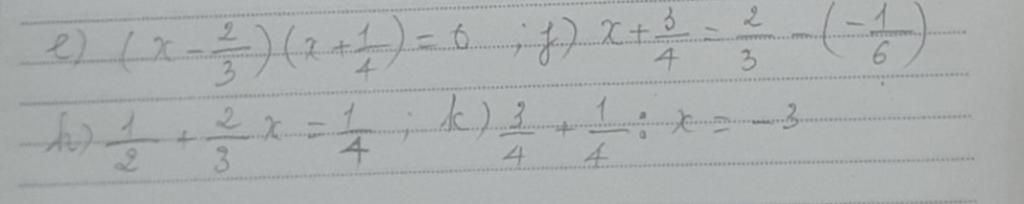 e) (x - 2/3)(x + 1/4) = 0 ; f) x + 3/4 = 2/3 - (-1/6)
h) 1/2 + 2/3 x = 1/4 ; k) 3/4 + 1/4 : x = -3